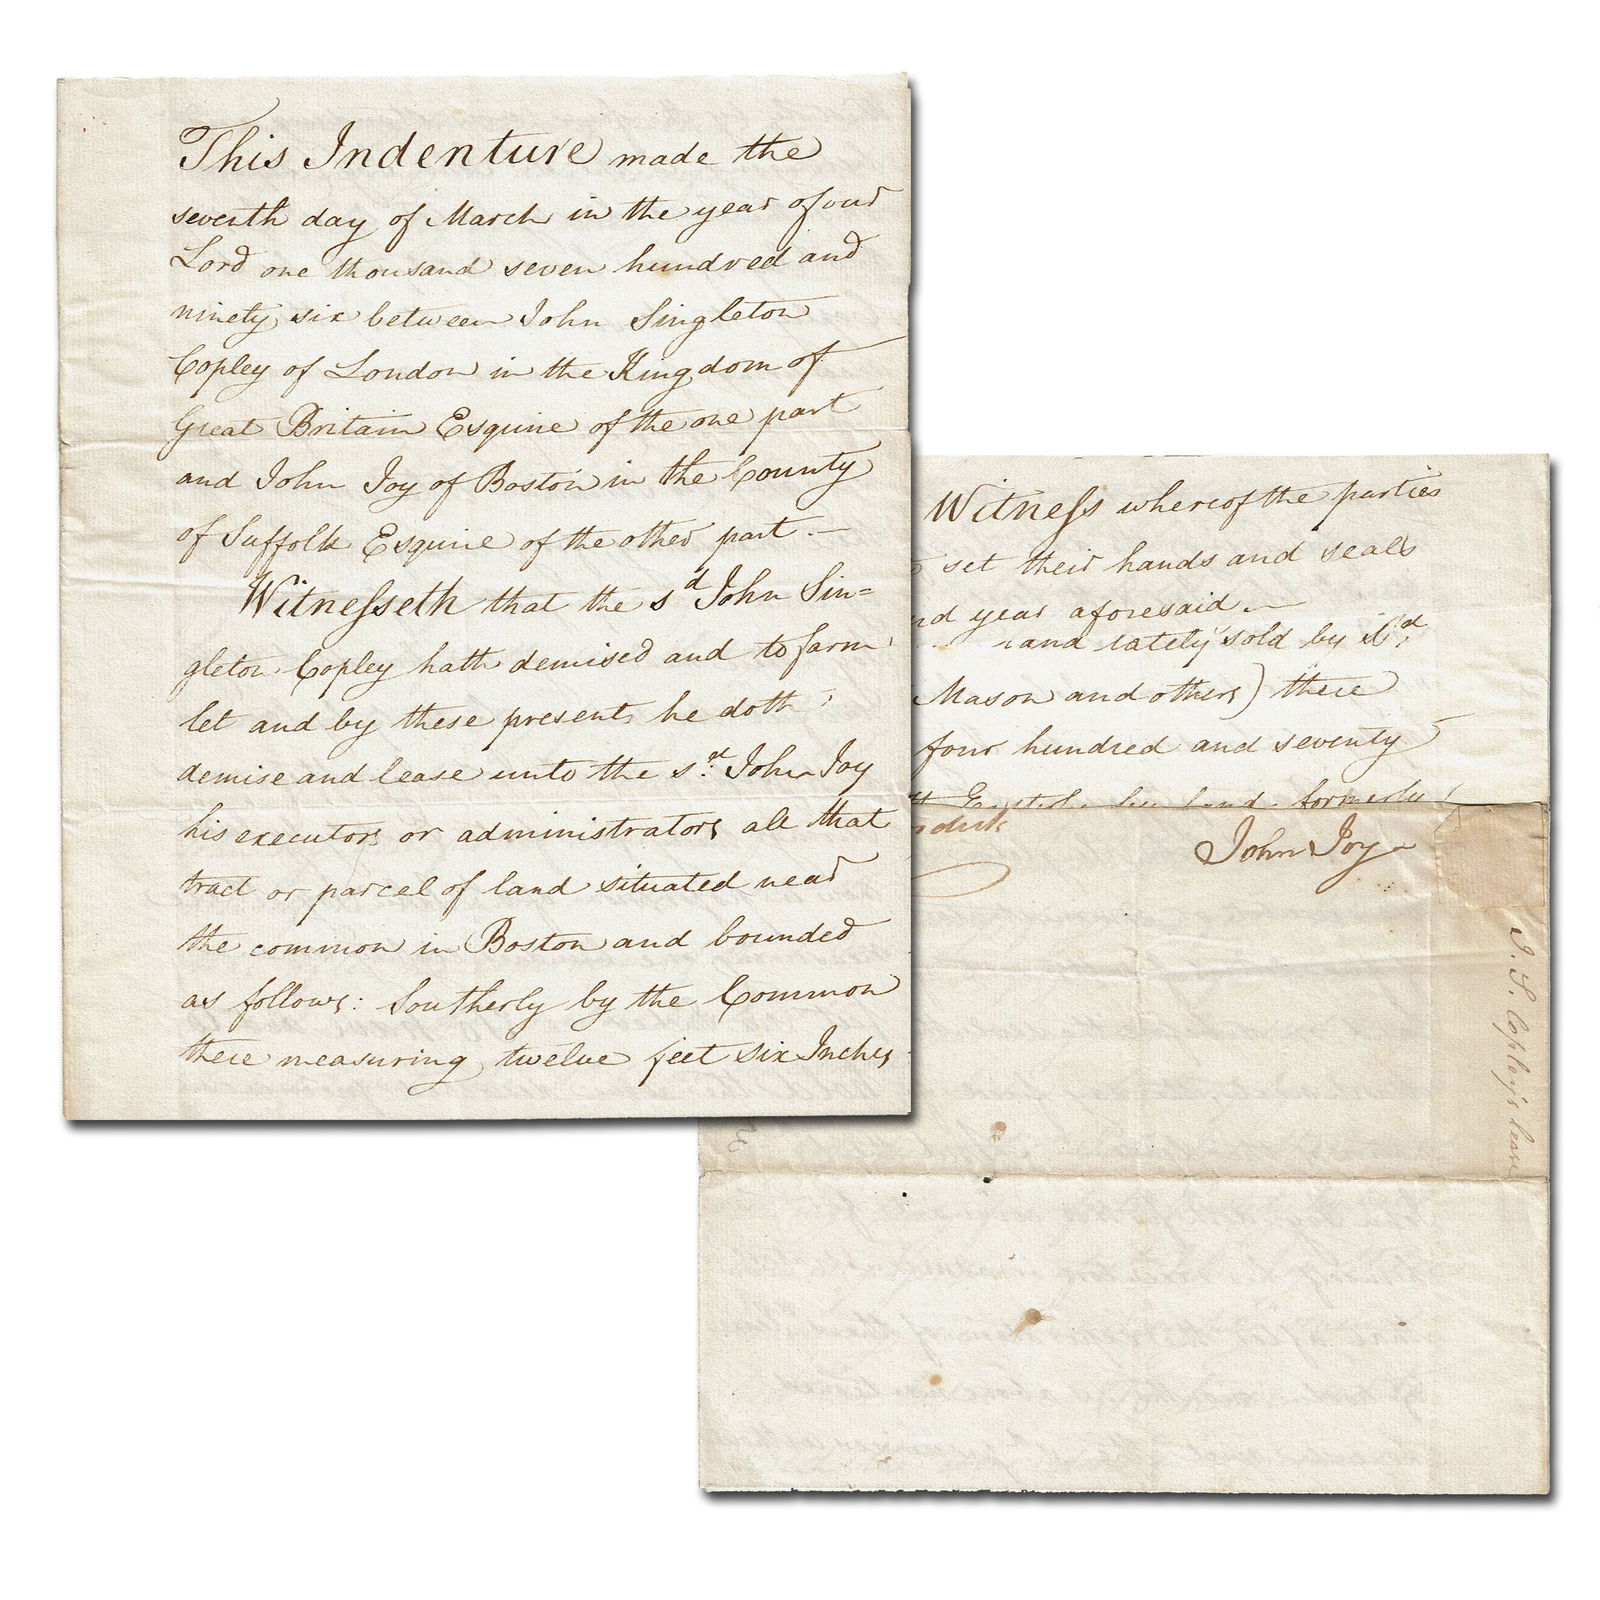 This Indenture made the
seventh day of March in the year of our
Lord one thousand seven hundred and
ninety six between John Singleton
Copley of London in the Kingdom of
Great Britain Esquire of the one part
and John Joy of Boston in the County
of Suffolk Esquire of the other part.—
Witnesseth that the sd John Sin=
gleton Copley hath demised and to farm
let and by these presents he doth
demise and lease unto the sd. John Joy
his executors or administrators all that
tract or parcel of land situated near
the common in Boston and bounded
as follows: Southerly by the Common
there measuring twelve feet six Inches
Witness whereof the parties
set their hands and seals
nd year aforesaid.—
land lately sold by sd
Mason and others) there
four hundred and seventy
formerly
John Joy
J. S. Copley's lease